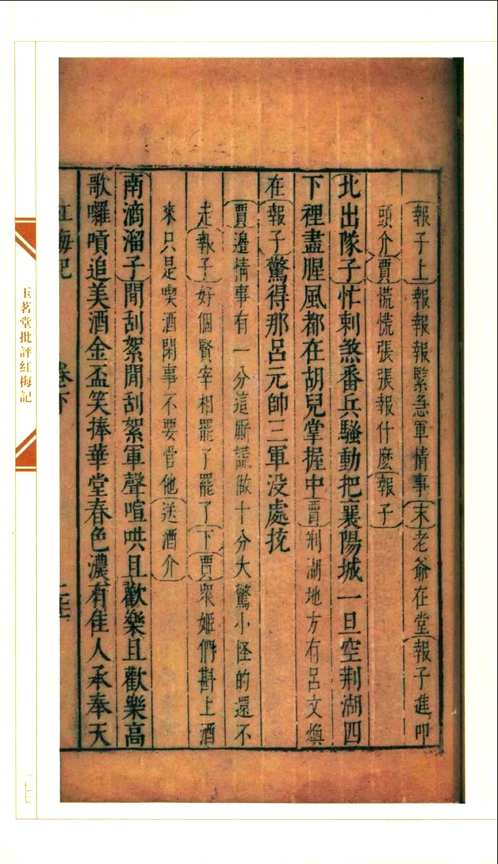 報子上報報報緊急軍情事末老爺在堂報子進叩
頭介賈慌慌張張報什麽報子
北出隊子忙剌煞番兵騷動把襄陽城一旦空荆湖四
下裡盡腥風都在胡兒掌握中賈荆湖地方有呂文煥
在報子驚得那呂元帥三軍没處㧞
賈邊情事有一分這厮謊做十分大驚小怪的還不
走報子好個賢宰相罷了罷了下賈衆姬們斟上酒
來只是喫酒閑事不要管他送酒介
南滴溜子閒刮絮閒刮絮軍聲喧哄且歡樂且歡樂高
歌囉嗊追美酒金盃笑捧華堂春色濃有佳人承奉天
紅梅記 卷下
玉茗堂批評紅梅記